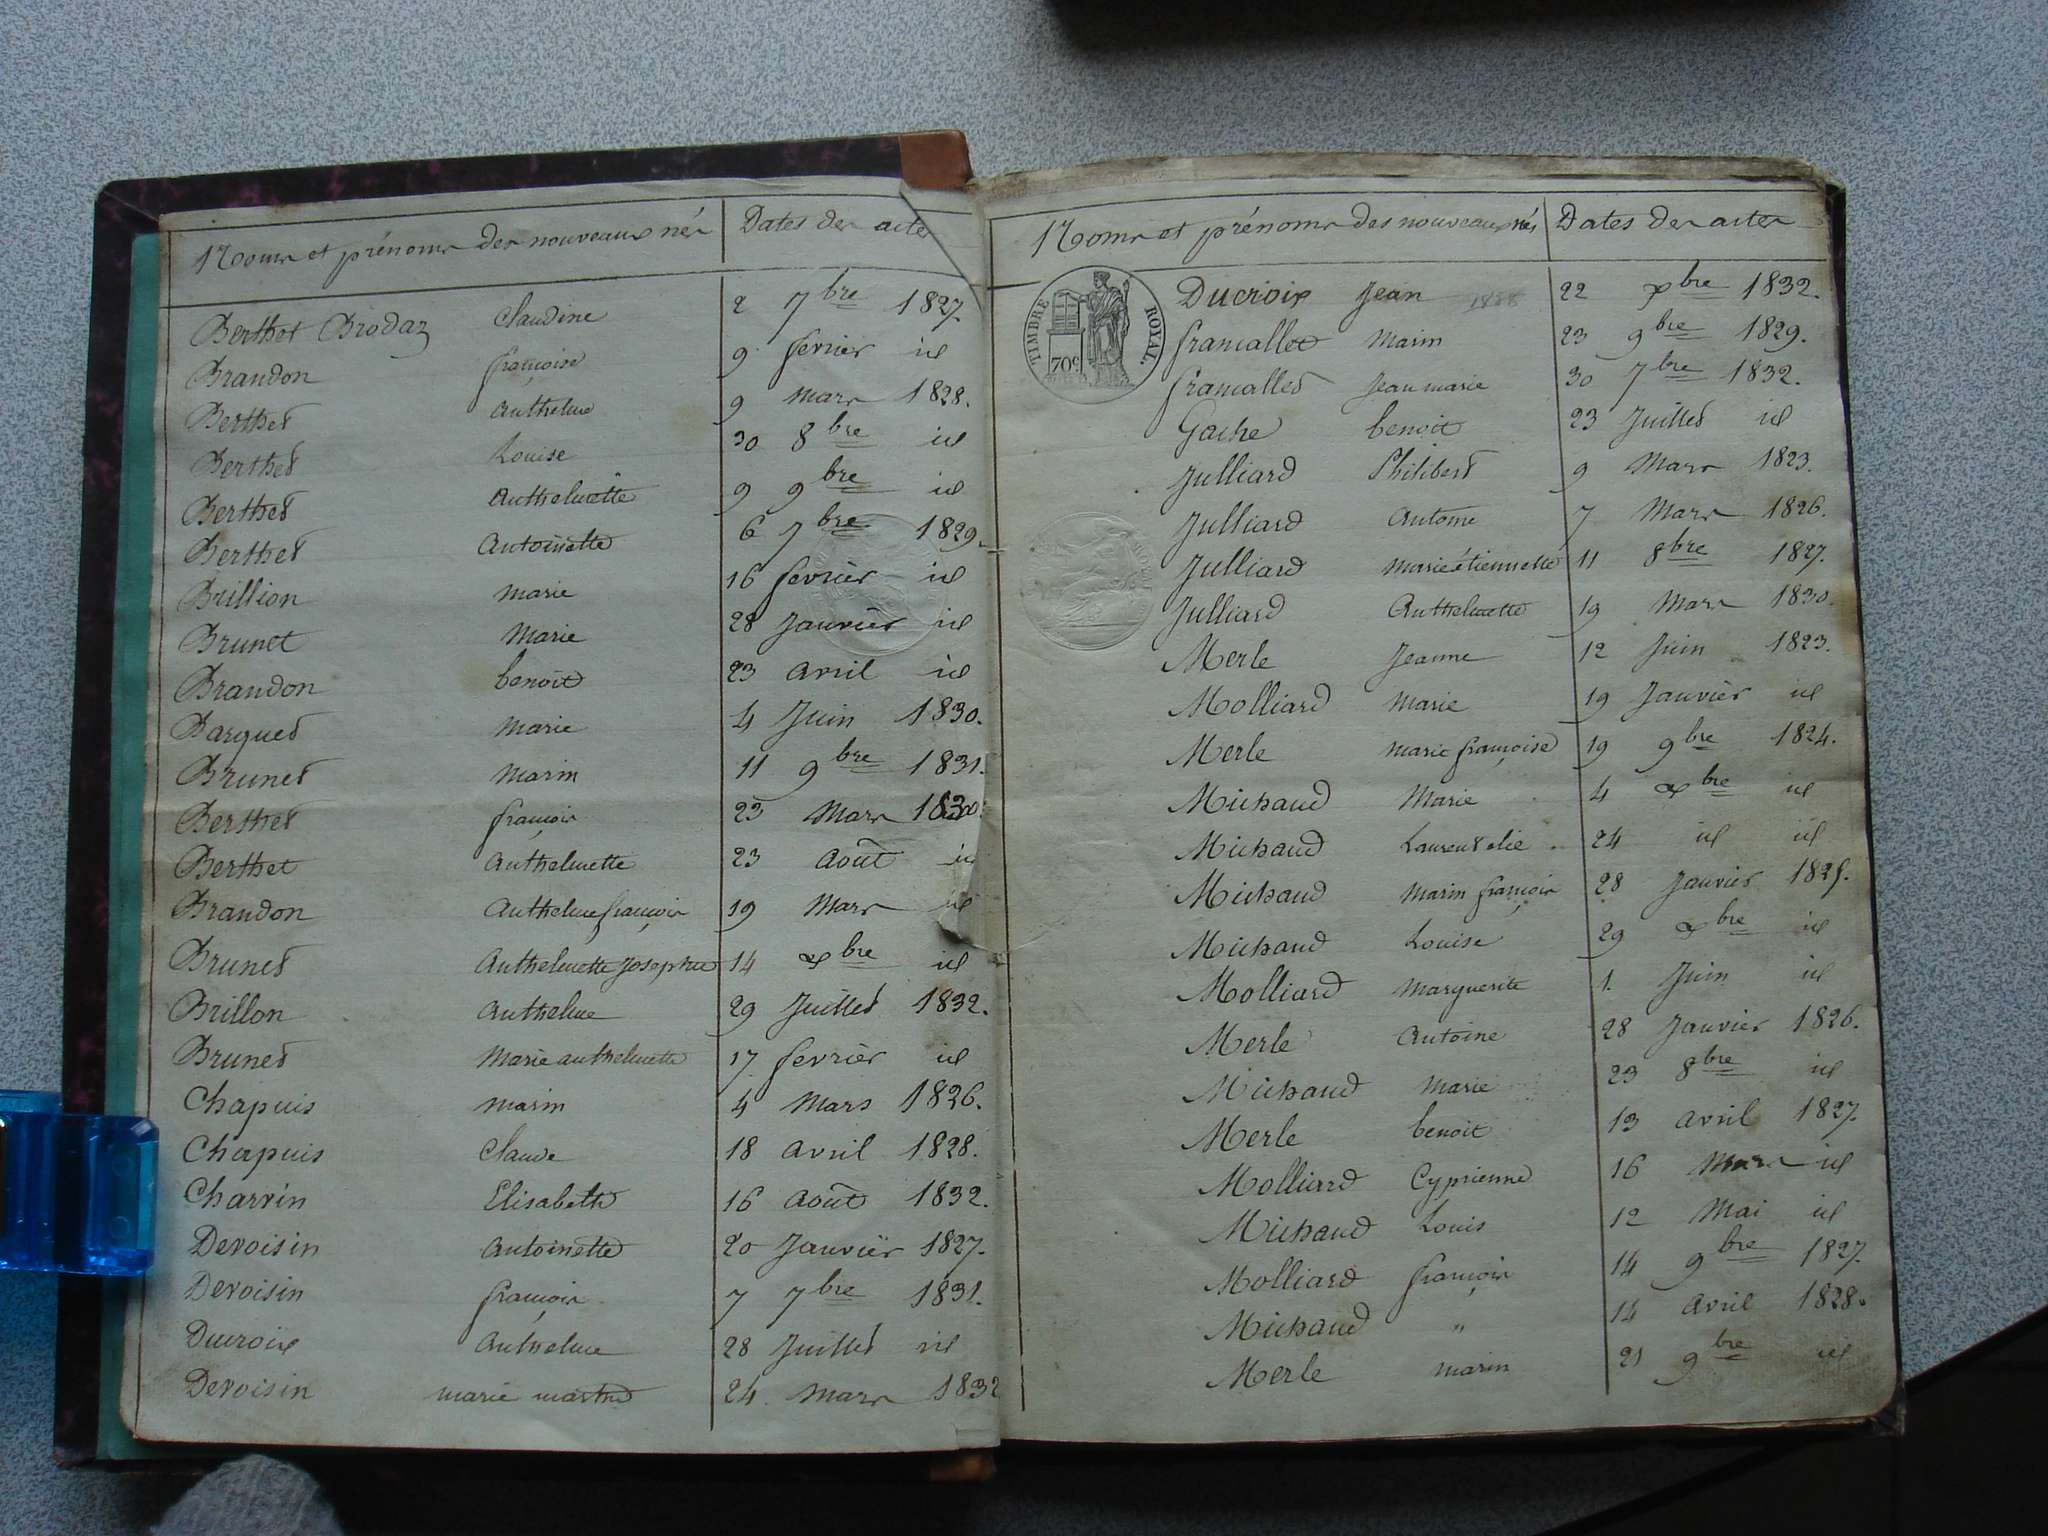 Noms et prénoms des nouveaux nés Dates des actes
Berthet Brodaz Claudine 2 7bre 1827.
Brandon françoise 9 fevrier id
Berthet Anthelme 9 Mars 1828.
Berthet Louise 30 8bre id
Berthet Anthelmette 9 9bre id
Berthet Antoinette 6 7bre 1829.
Brillion Marie 16 fevrier id
Brunet Marie 28 Janvier id
Brandon benoit 23 avril id
Barquet Marie 4 Juin 1830.
Brunet Marin 11 9bre 1831.
Berthet françois 23 Mars
Berthet Anthelmette 23 Août id
Brandon Anthelme françois 19 Mars id
Brunet Anthelmette Josephte 14 xbre id
Brillon Anthelme 29 Juillet 1832.
Brunet Marie anthelmette 17 fevrier id
Chapuis Marin 4 Mars 1826.
Chapuis Claude 18 Avril 1828.
Charvin Elisabeth 16 Août 1832.
Devoisin Antoinette 20 Janvier 1827.
Devoisin françois 7 7bre 1831.
Ducroix Anthelme 28 Juillet id
Devoisin marie marthe 24 Mars 1832
Noms et prénoms des nouveaux nés Dates des actes
TIMBRE ROYAL.
70c
Ducroix Jean 22 xbre 1832.
francallet Marin 23 9bre 1829.
francallet Jean marie 30 7bre 1832.
Gache benoit 23 Juillet id
Julliard Philibert 9 Mars 1823.
Julliard Antoine 7 Mars 1826.
Julliard Marie étiennette 11 8bre 1827.
Julliard Anthelmette 19 Mars 1830.
Merle Jeanne 12 Juin 1823.
Molliard Marie 19 Janvier id
Merle Marie françoise 19 9bre 1824.
Michaud Marie 4 xbre id
Michaud Laurent elie 24 id id
Michaud Marin françois 28 Janvier 1825.
Michaud Louise 29 xbre id
Molliard Marguerite 1. Juin id
Merle Antoine 28 Janvier 1826.
Michaud Marie 23 8bre id
Merle benoit 13 avril 1827.
Molliard Cyprienne 16 Mars id
Michaud Louis 12 Mai id
Molliard françois 14 9bre 1827.
Michaud " 14 Avril 1828.
Merle Marin 21 9bre id